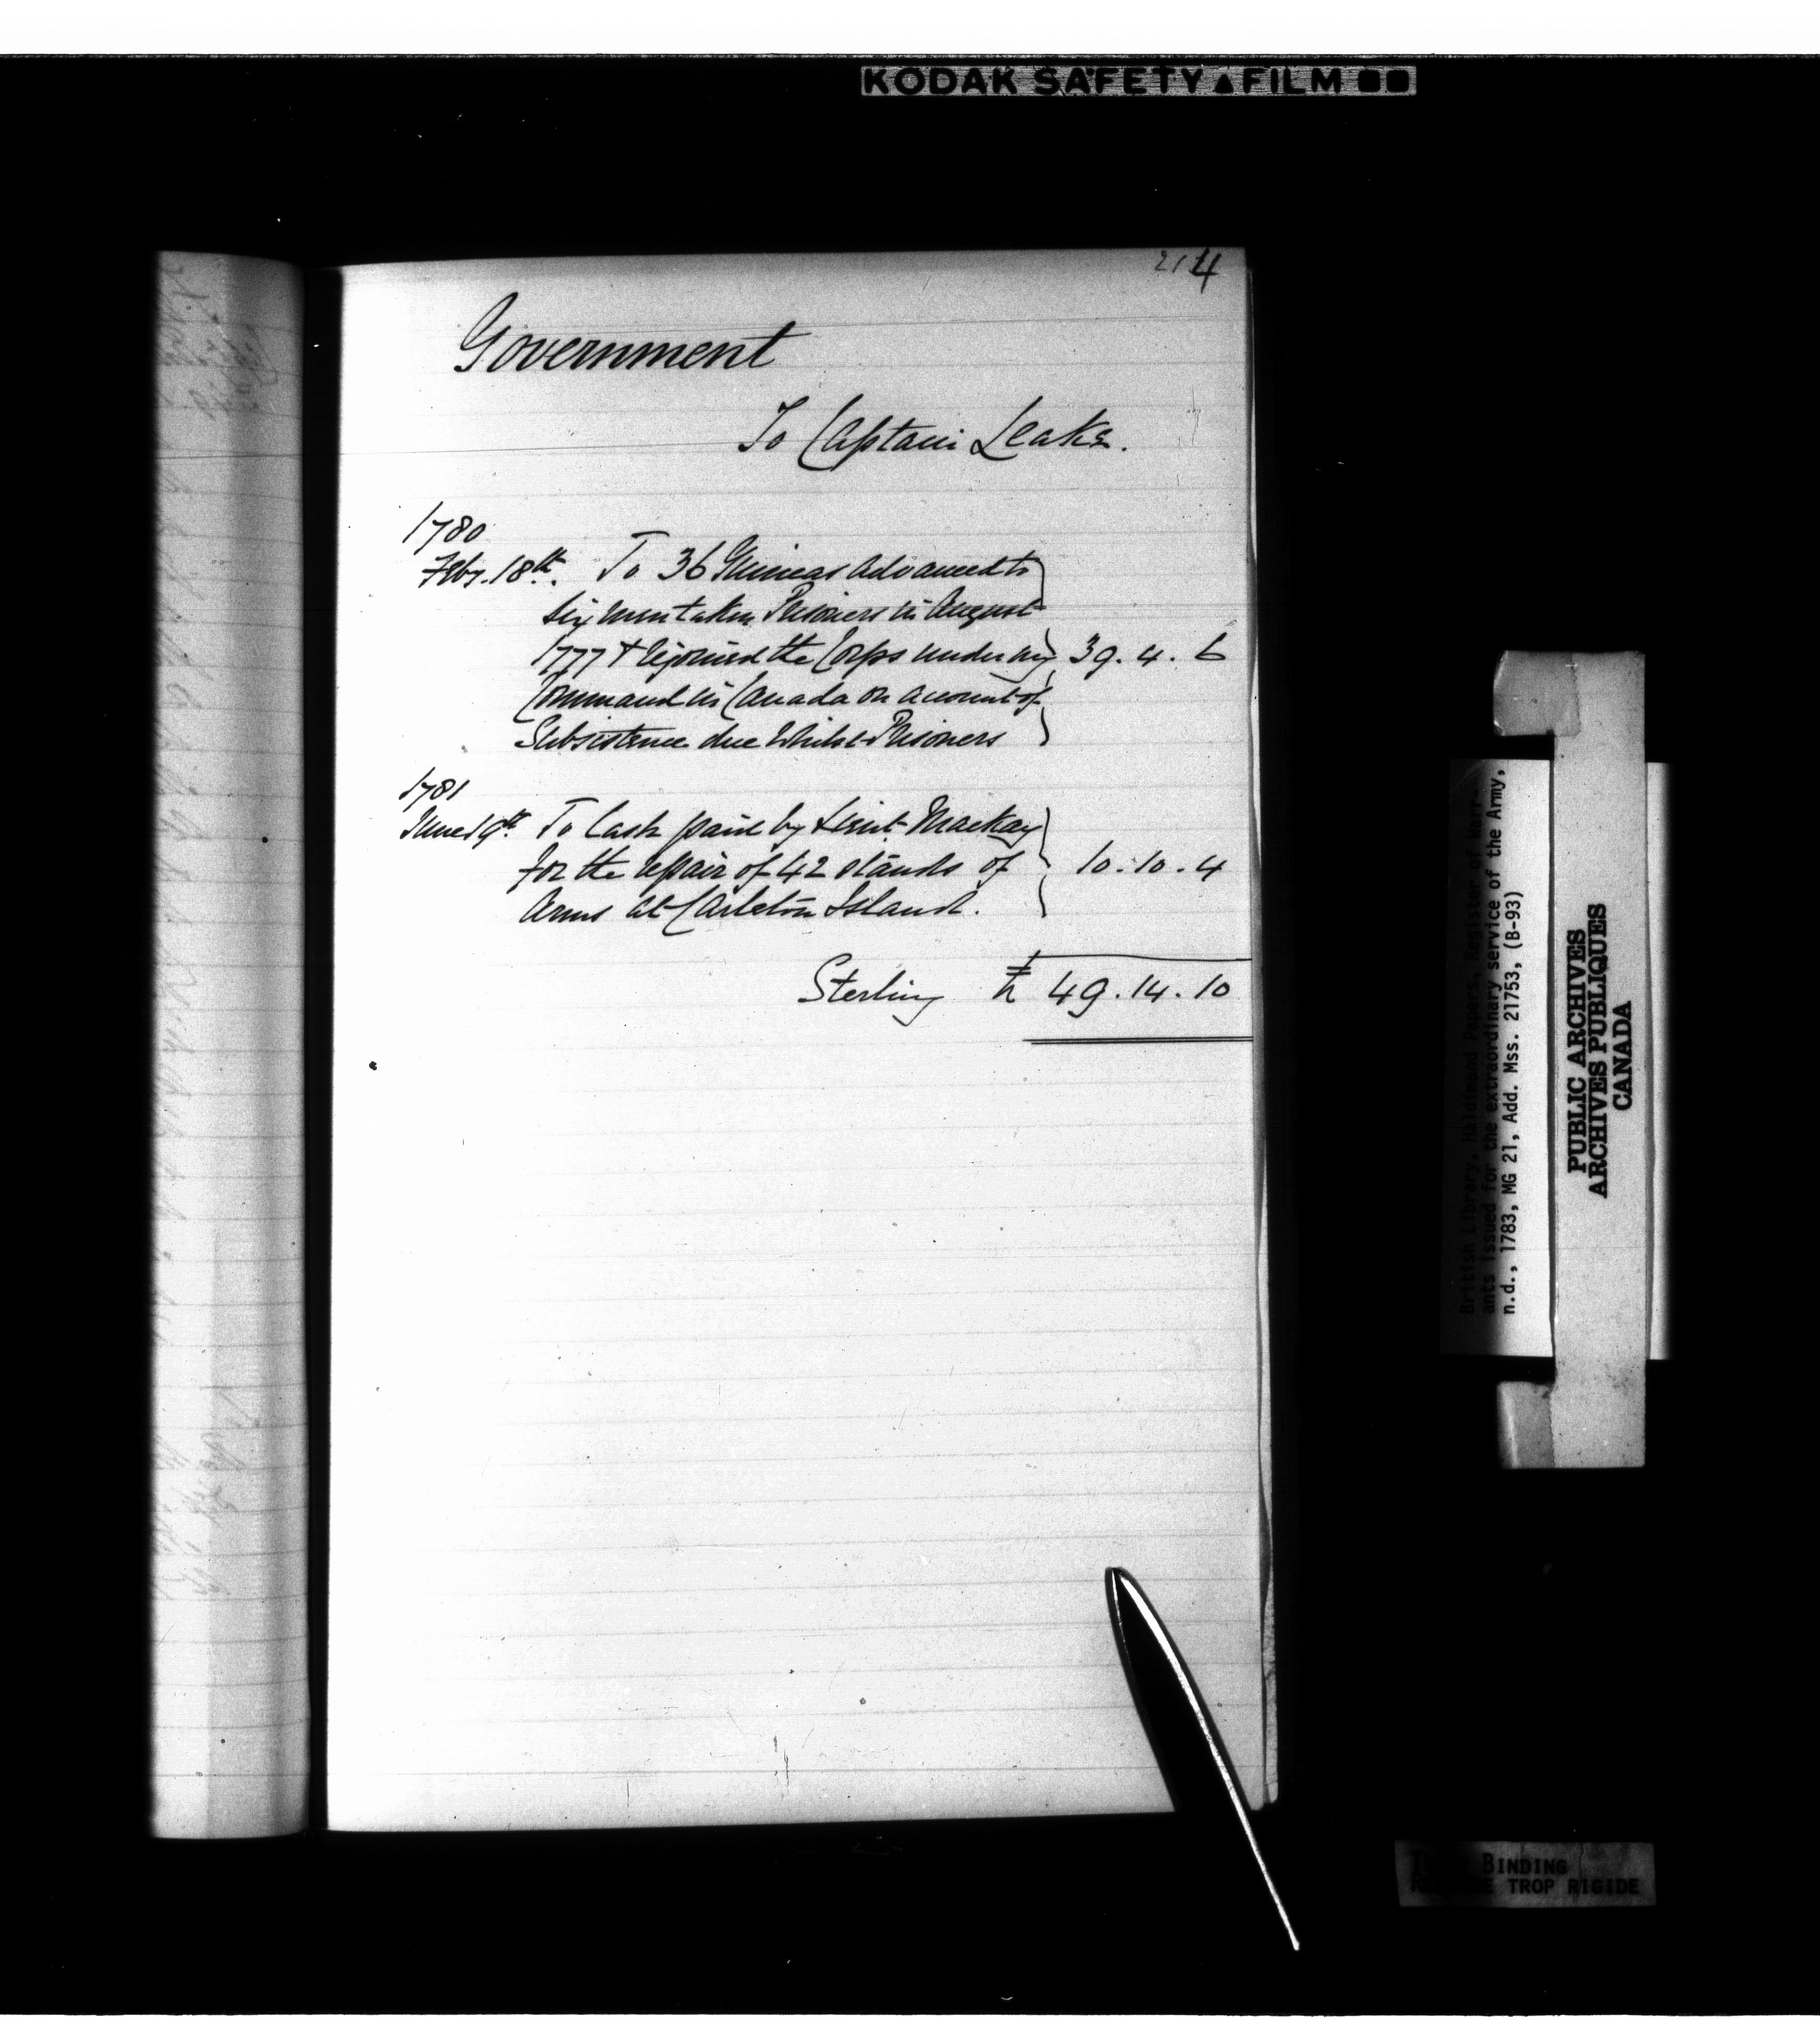 KODAK SAFETY ▲ FILM
214
Government
To Captain Leake.
1780
Feby. 18th. To 36 Guineas advanced to
six men taken Prisoners in August
1777 & rejoined the Corps under my 39. 4. 6
Command in Canada on account of
Subsistence due whilst Prisoners
1781
June 19th. To Cash paid by Lieut Mackay
for the repair of 42 stands of 10. 10. 4
Arms at Carleton Island.
Sterling £ 49. 14. 10
British Library, Haldimand Papers, Register of Warr-
ants issued for the extraordinary service of the Army,
n.d., 1783, MG 21, Add. Mss. 21753, (B-93)
PUBLIC ARCHIVES
ARCHIVES PUBLIQUES
CANADA
BINDING
TROP RIGIDE